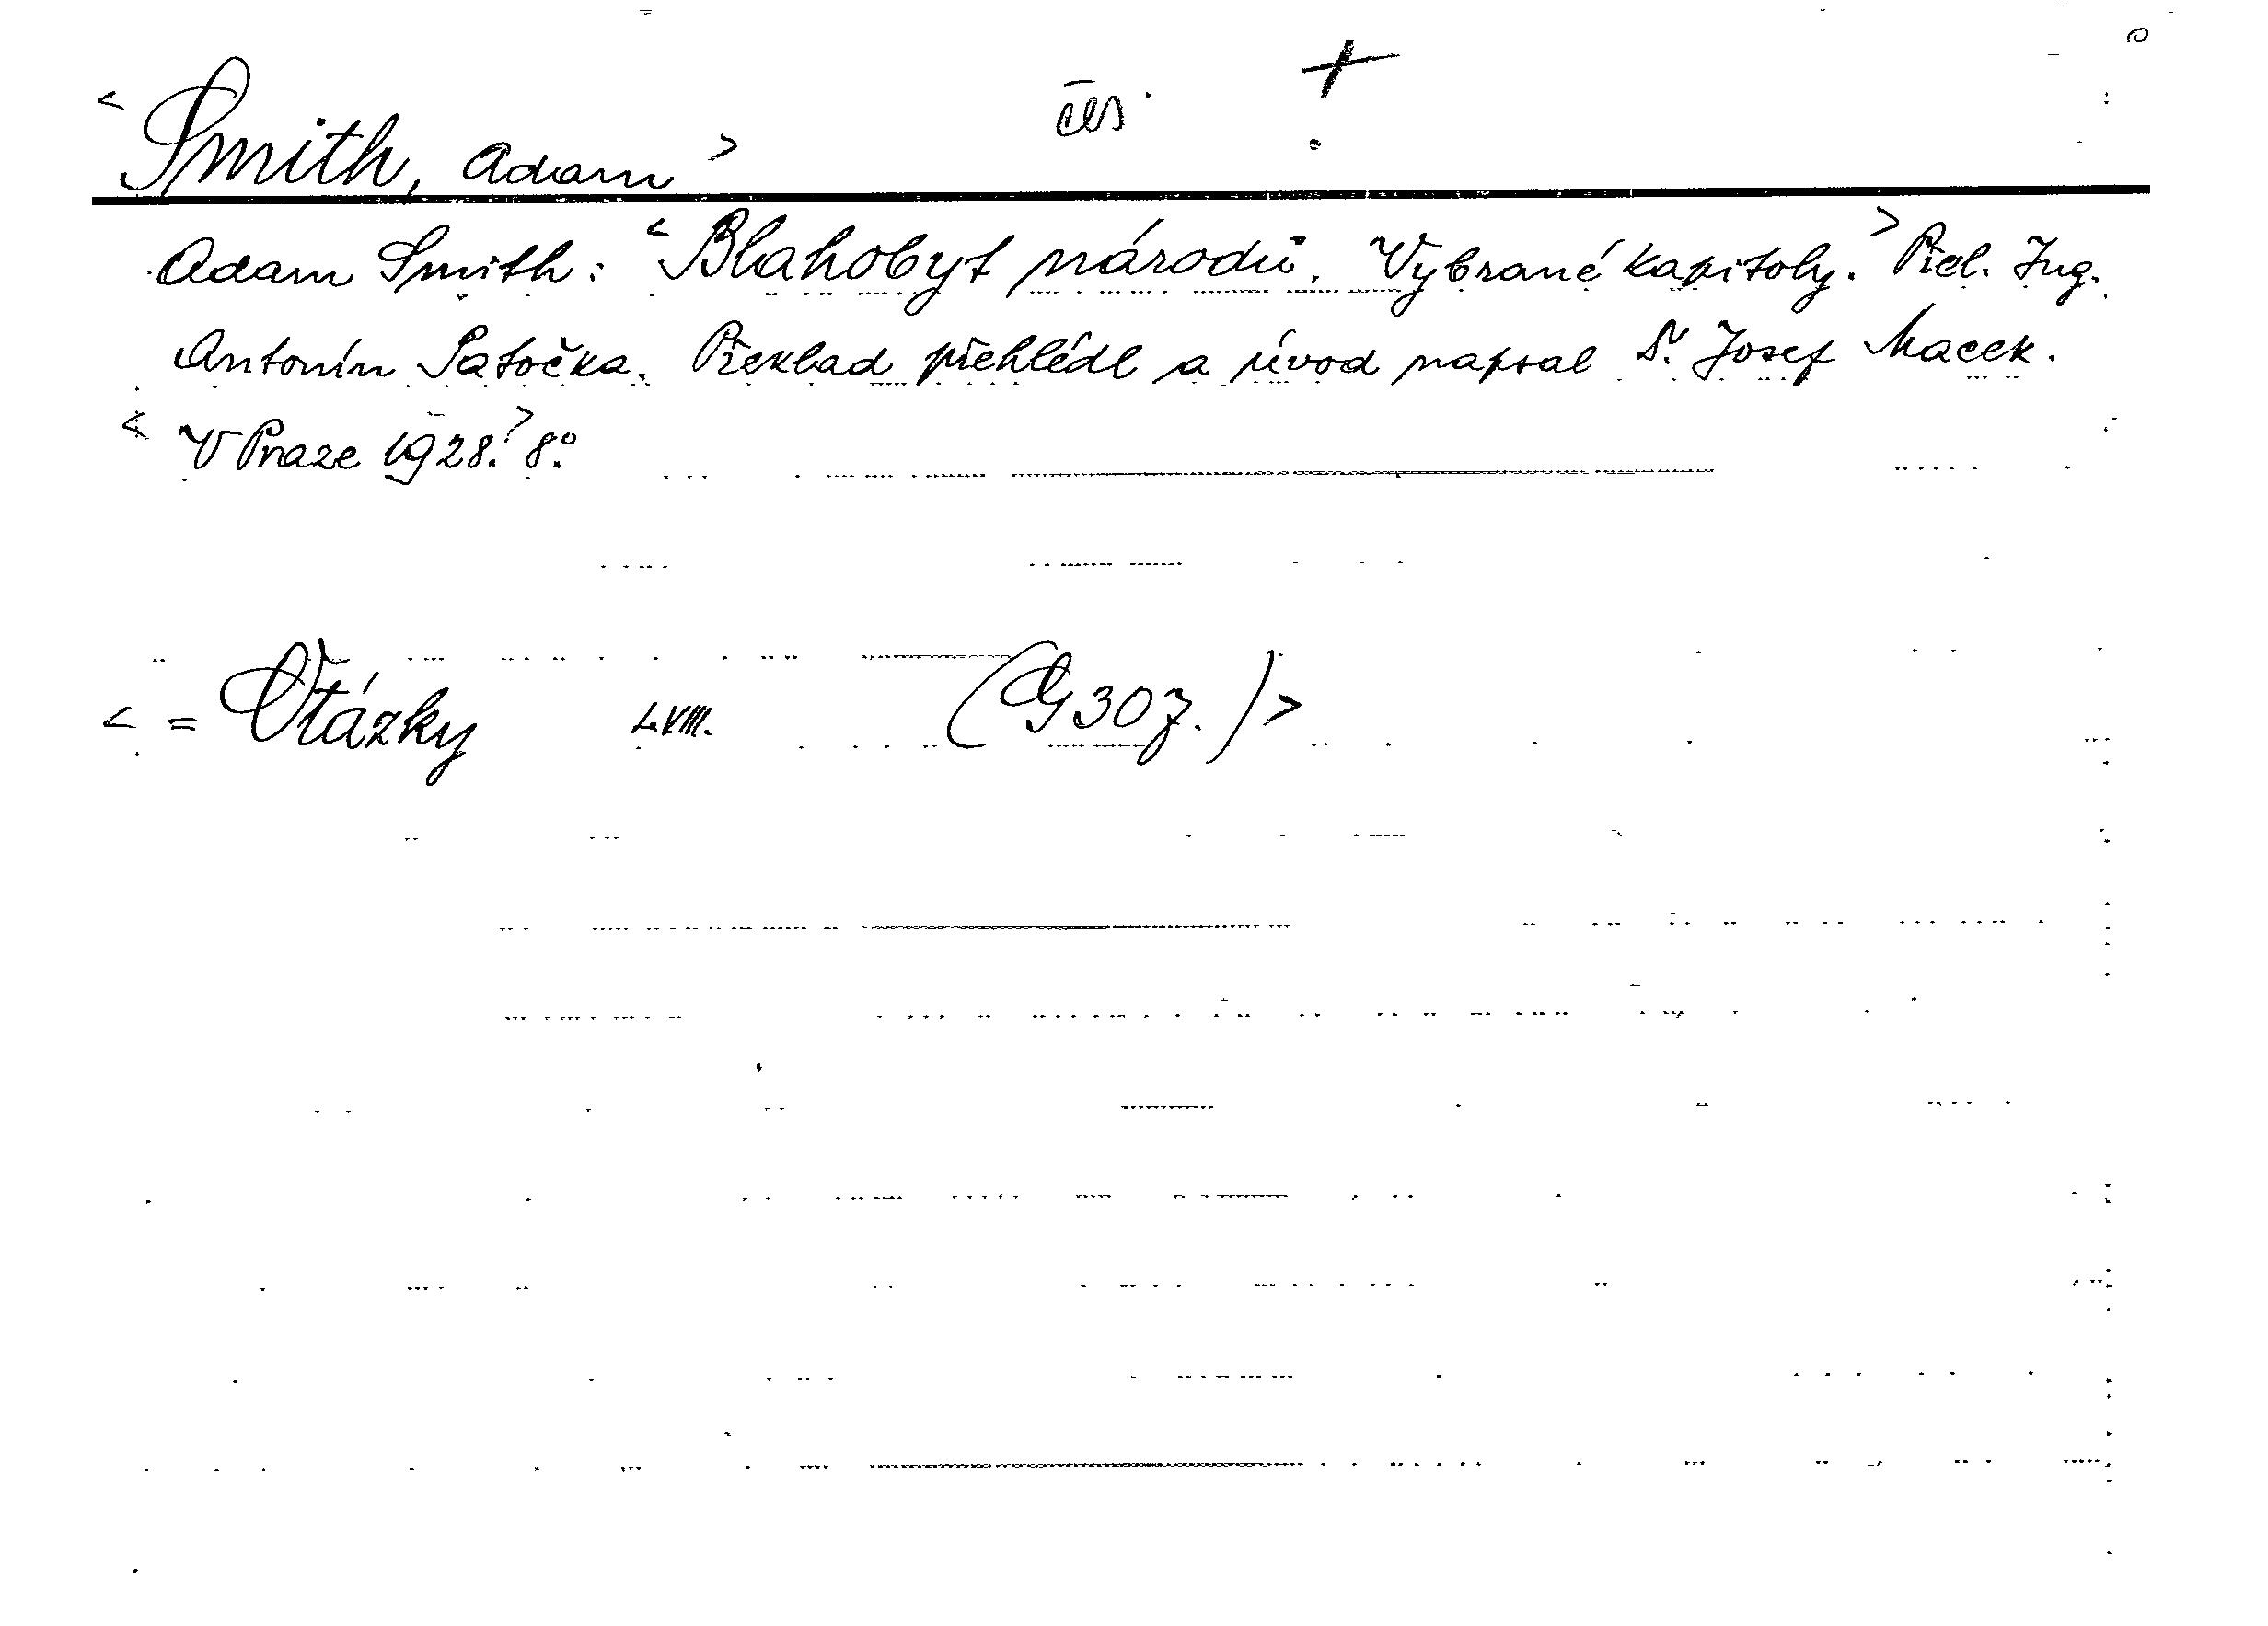 < Smith, Adam > čes. +
Adam Smith: < Blahobyt národů. Vybrané kapitoly. > Přel. Ing.
Antonín Patočka. Překlad přehlédl a úvod napsal Dr. Josef Macek.
< V Praze 1928. > 8.°
< = Otázky L.VIII. (G 307.) >